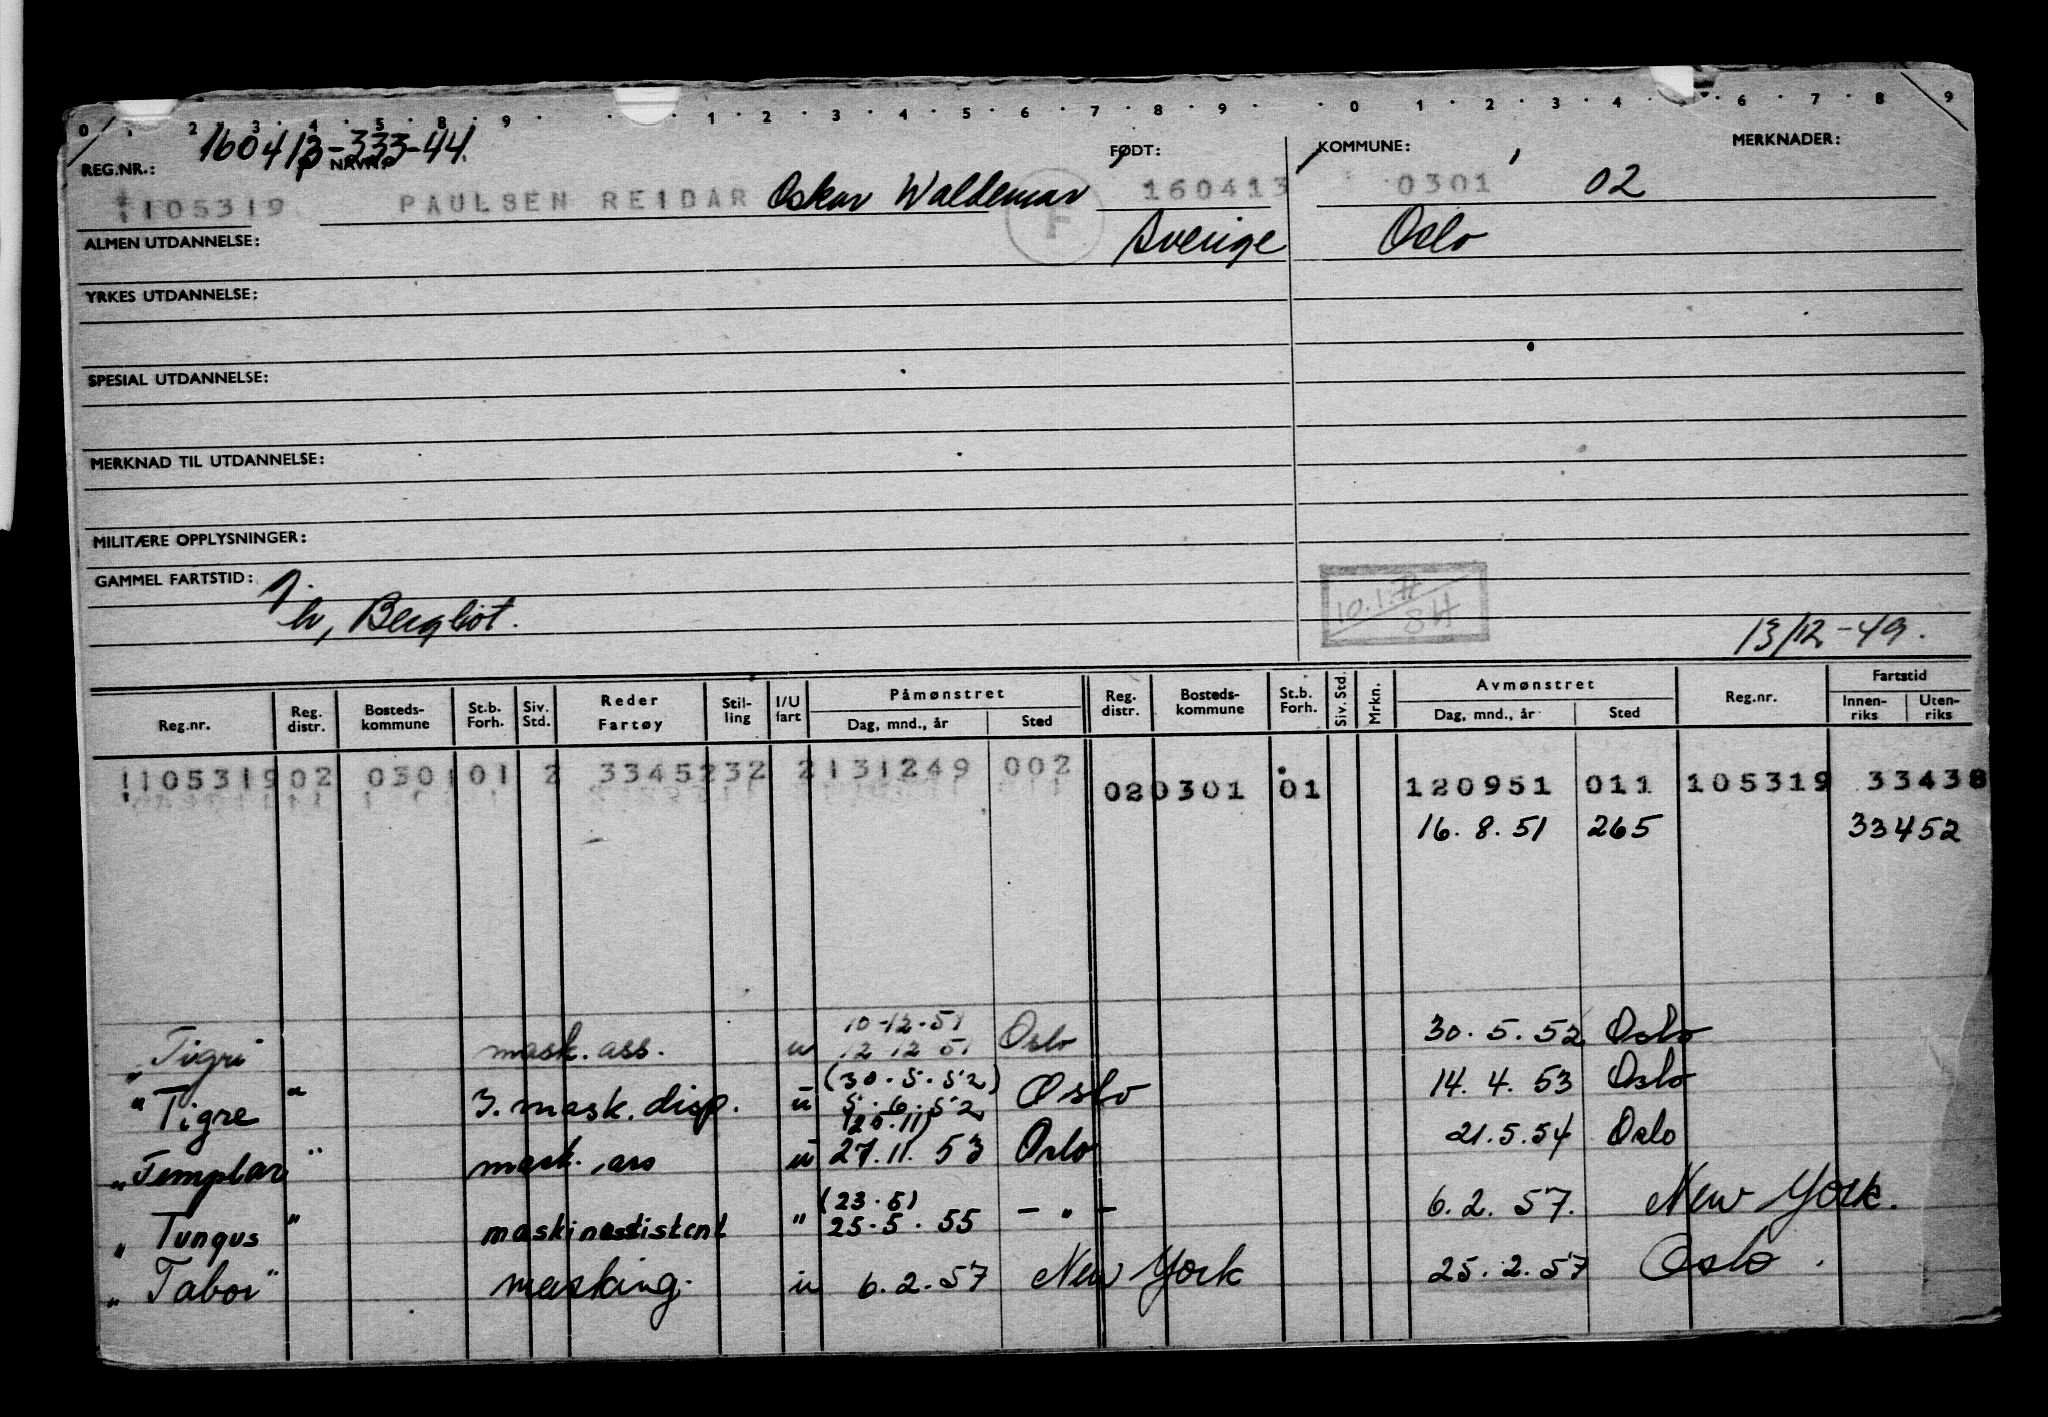 0 1 2 3 4 5 8 9 1 2 3 4 5 6 7 8 9 0 1 2 3 4 6 7 8 9
160413-333-44
REG.NR.: NAVN: FØDT: KOMMUNE: MERKNADER:
105319 PAULSEN REIDAR Oskar Waldemar F 160413 0301 02
ALMEN UTDANNELSE: Sverige Oslo
YRKES UTDANNELSE:
SPESIAL UTDANNELSE:
MERKNAD TIL UTDANNELSE:
MILITÆRE OPPLYSNINGER:
GAMMEL FARTSTID:
h, Bergliot. 13/12-49.
Reg.nr. Reg. distr. Bosteds-kommune St.b. Forh. Siv. Std. Reder Fartøy Stil-ling I/U fart Påmønstret Dag, mnd., år Sted Reg. distr. Bosteds-kommune St.b. Forh. Siv. Std. Mrkn. Avmønstret Dag, mnd., år Sted Reg.nr. Fartstid Innen-riks Uten-riks
105319 02 0301 01 2 33452 32 2 131249 002 02 0301 01 120951 011 105319 33438
16. 8. 51 265 33452
10-12-51
"Tigri mask. ass. u 12 12 51 Oslo 30. 5. 52 Oslo
(30.5.52)
"Tigre" 3. mask. disp. u 5.6.52 Oslo 14. 4. 53 Oslo
(20.11)
"Templar" mask. ass u 27.11. 53 Oslo 21.5.54 Oslo
(23.5)
"Tungus" maskinassistent " 25.5.55 - " - 6.2. 57. New York.
"Tabor" masking. u 6.2.57 New York 25.2.57 Oslo.